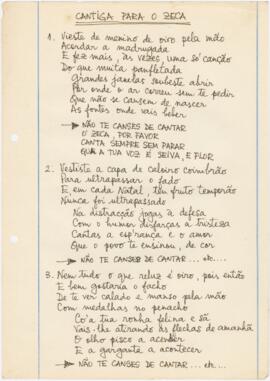 CANTIGA PARA O ZECA
1. Vieste de menino de oiro pela mão
Acordar a madrugada
E fez mais, às vezes, uma só canção
Do que muita panfletada
Grandes janelas soubeste abrir
Por onde o ar correu sem te pedir
Que não se cansem de nascer
As fontes onde vais beber
→ NÃO TE CANSES DE CANTAR
Ó ZECA, POR FAVOR
CANTA SEMPRE SEM PARAR
QUE A TUA VOZ É SEIVA, E FLOR
2. Vestiste a capa de caloiro coimbrão
Para ultrapassar o fado
E em cada Natal, teu fruto temporão
Nunca foi ultrapassado
Na distracção jogas à defesa
Com o humor disfarças a tristeza
Cantas a esperança e o amor
Que o povo te ensinou, de cor
→ NÃO TE CANSES DE CANTAR ... etc. ....
3. Nem tudo o que reluz é oiro, pois então
E bem gostaria o facho
De te ver calado e manso pela mão
Com medalhas no penacho
Co'a tua ronha felina e sã
Vais-lhe atirando as flechas de amanhã
O olho pisco a acender
E a garganta a acontecer
→ NÃO TE CANSES DE CANTAR ... etc. ...